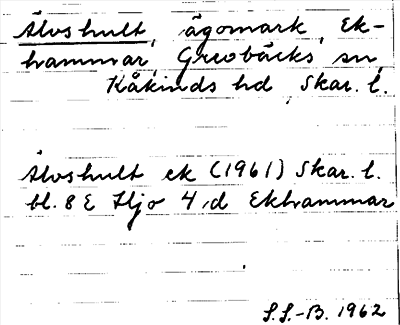 Älvshult, ägomark, Ek-
hammar, Grevbäcks sn,
Kåkinds hd, Skar. l.
Älvshult ek (1961) Skar. l.
bl. 8 E Hjo 4 d Ekhammar
S.S.-B. 1962